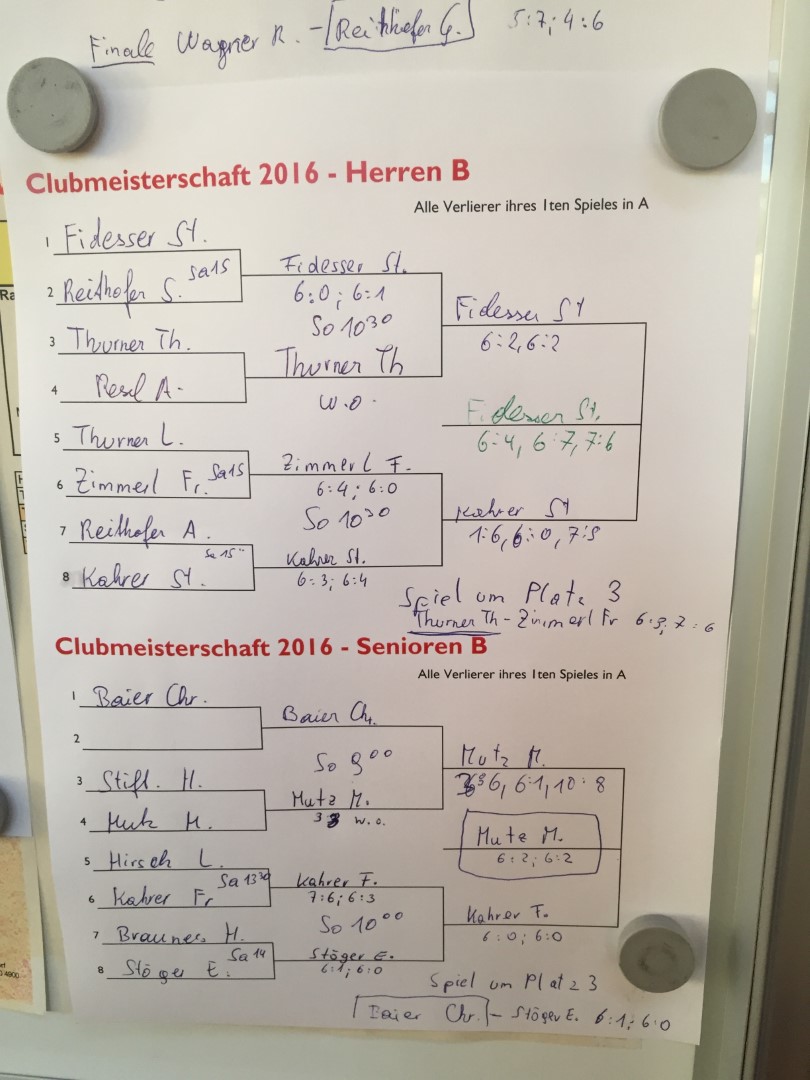 Finale Wagner R. - Reithofer G. 5:7; 4:6
Clubmeisterschaft 2016 - Herren B
Alle Verlierer ihres 1ten Spieles in A
1 Fidesser St.
2 Reithofer S. Sa 15
Fidesser St.
6:0; 6:1
So 10³⁰
3 Thurner Th.
4 Resl A.
Thurner Th
W.O.
Fidesser St
6:2, 6:2
Fidesser St.
6:4, 6:7, 7:6
5 Thurner L.
6 Zimmerl Fr. Sa 15
Zimmerl F.
6:4; 6:0
So 10³⁰
7 Reithofer A.
8 Kahrer St. Sa 15
Kahrer St.
6:3; 6:4
Kahrer St
1:6, 6:0, 7:5
Spiel um Platz 3
Thurner Th - Zimmerl Fr 7:6
Clubmeisterschaft 2016 - Senioren B
Alle Verlierer ihres 1ten Spieles in A
1 Baier Chr.
2
Baier Ch.
So 9⁰⁰
3 Stifl. H.
4 Mutz M.
Mutz M.
w.o.
Mutz M.
6:1, 10:8
Mutz M.
6:2; 6:2
5 Hirsch L.
6 Kahrer Fr Sa 13³⁰
Kahrer F.
7:6; 6:3
So 10⁰⁰
7 Brauner H.
8 Stöger E. Sa 14
Stöger E.
6:1; 6:0
Kahrer F.
6:0; 6:0
Spiel um Platz 3
Baier Chr. - Stöger E. 6:1; 6:0
Ra
4900